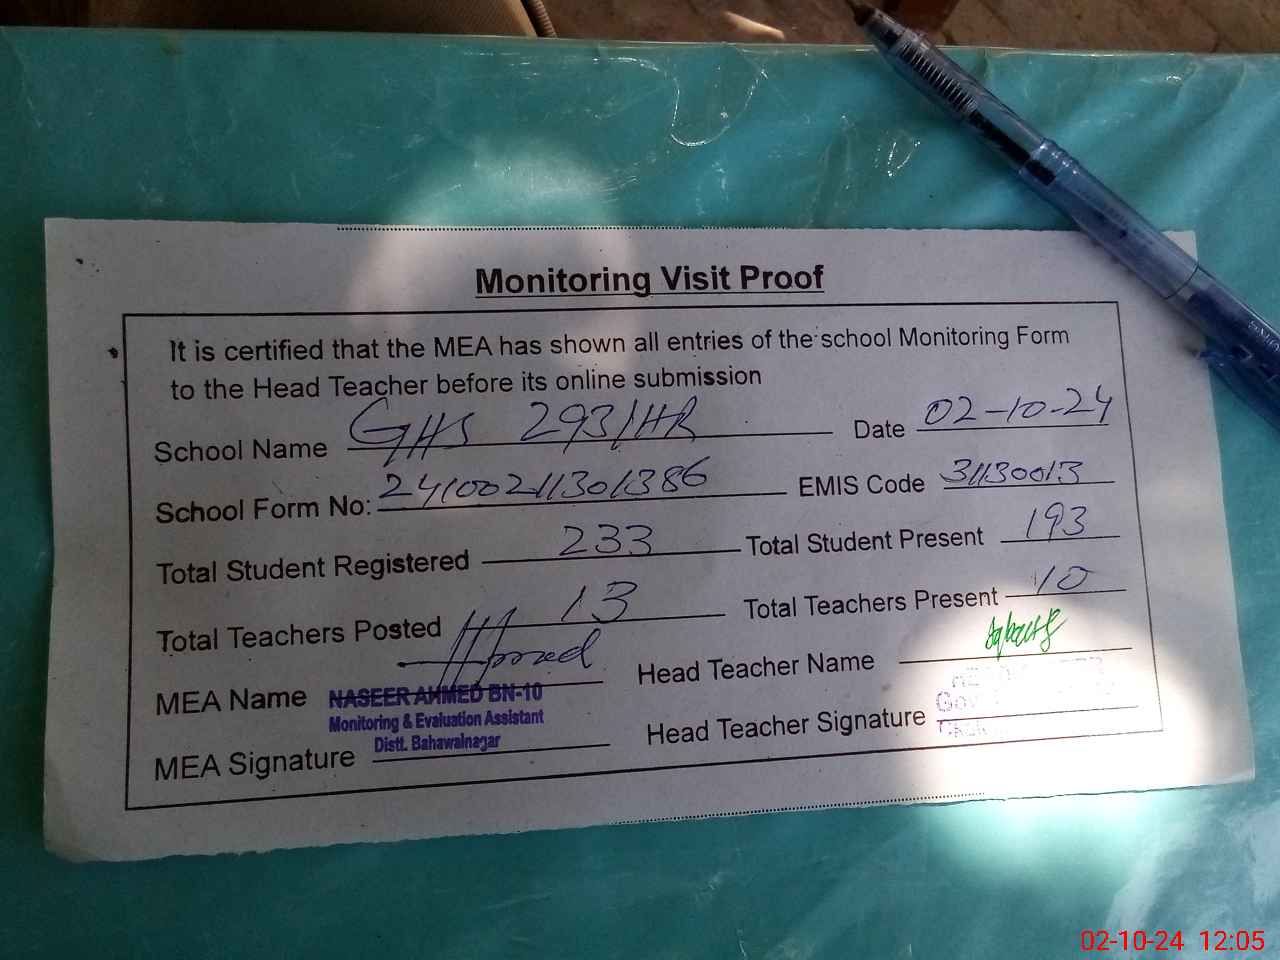 Monitoring Visit Proof
It is certified that the MEA has shown all entries of the school Monitoring Form
to the Head Teacher before its online submission
School Name GHS 293/HR Date 02-10-24
School Form No: 24100211301386 EMIS Code 31130013
Total Student Registered 233 Total Student Present 193
Total Teachers Posted 13 Total Teachers Present 10
MEA Name Head Teacher Name
NASEER AHMED BN-10
Monitoring & Evaluation Assistant
Distt. Bahawalnagar
MEA Signature Head Teacher Signature
02-10-24 12:05